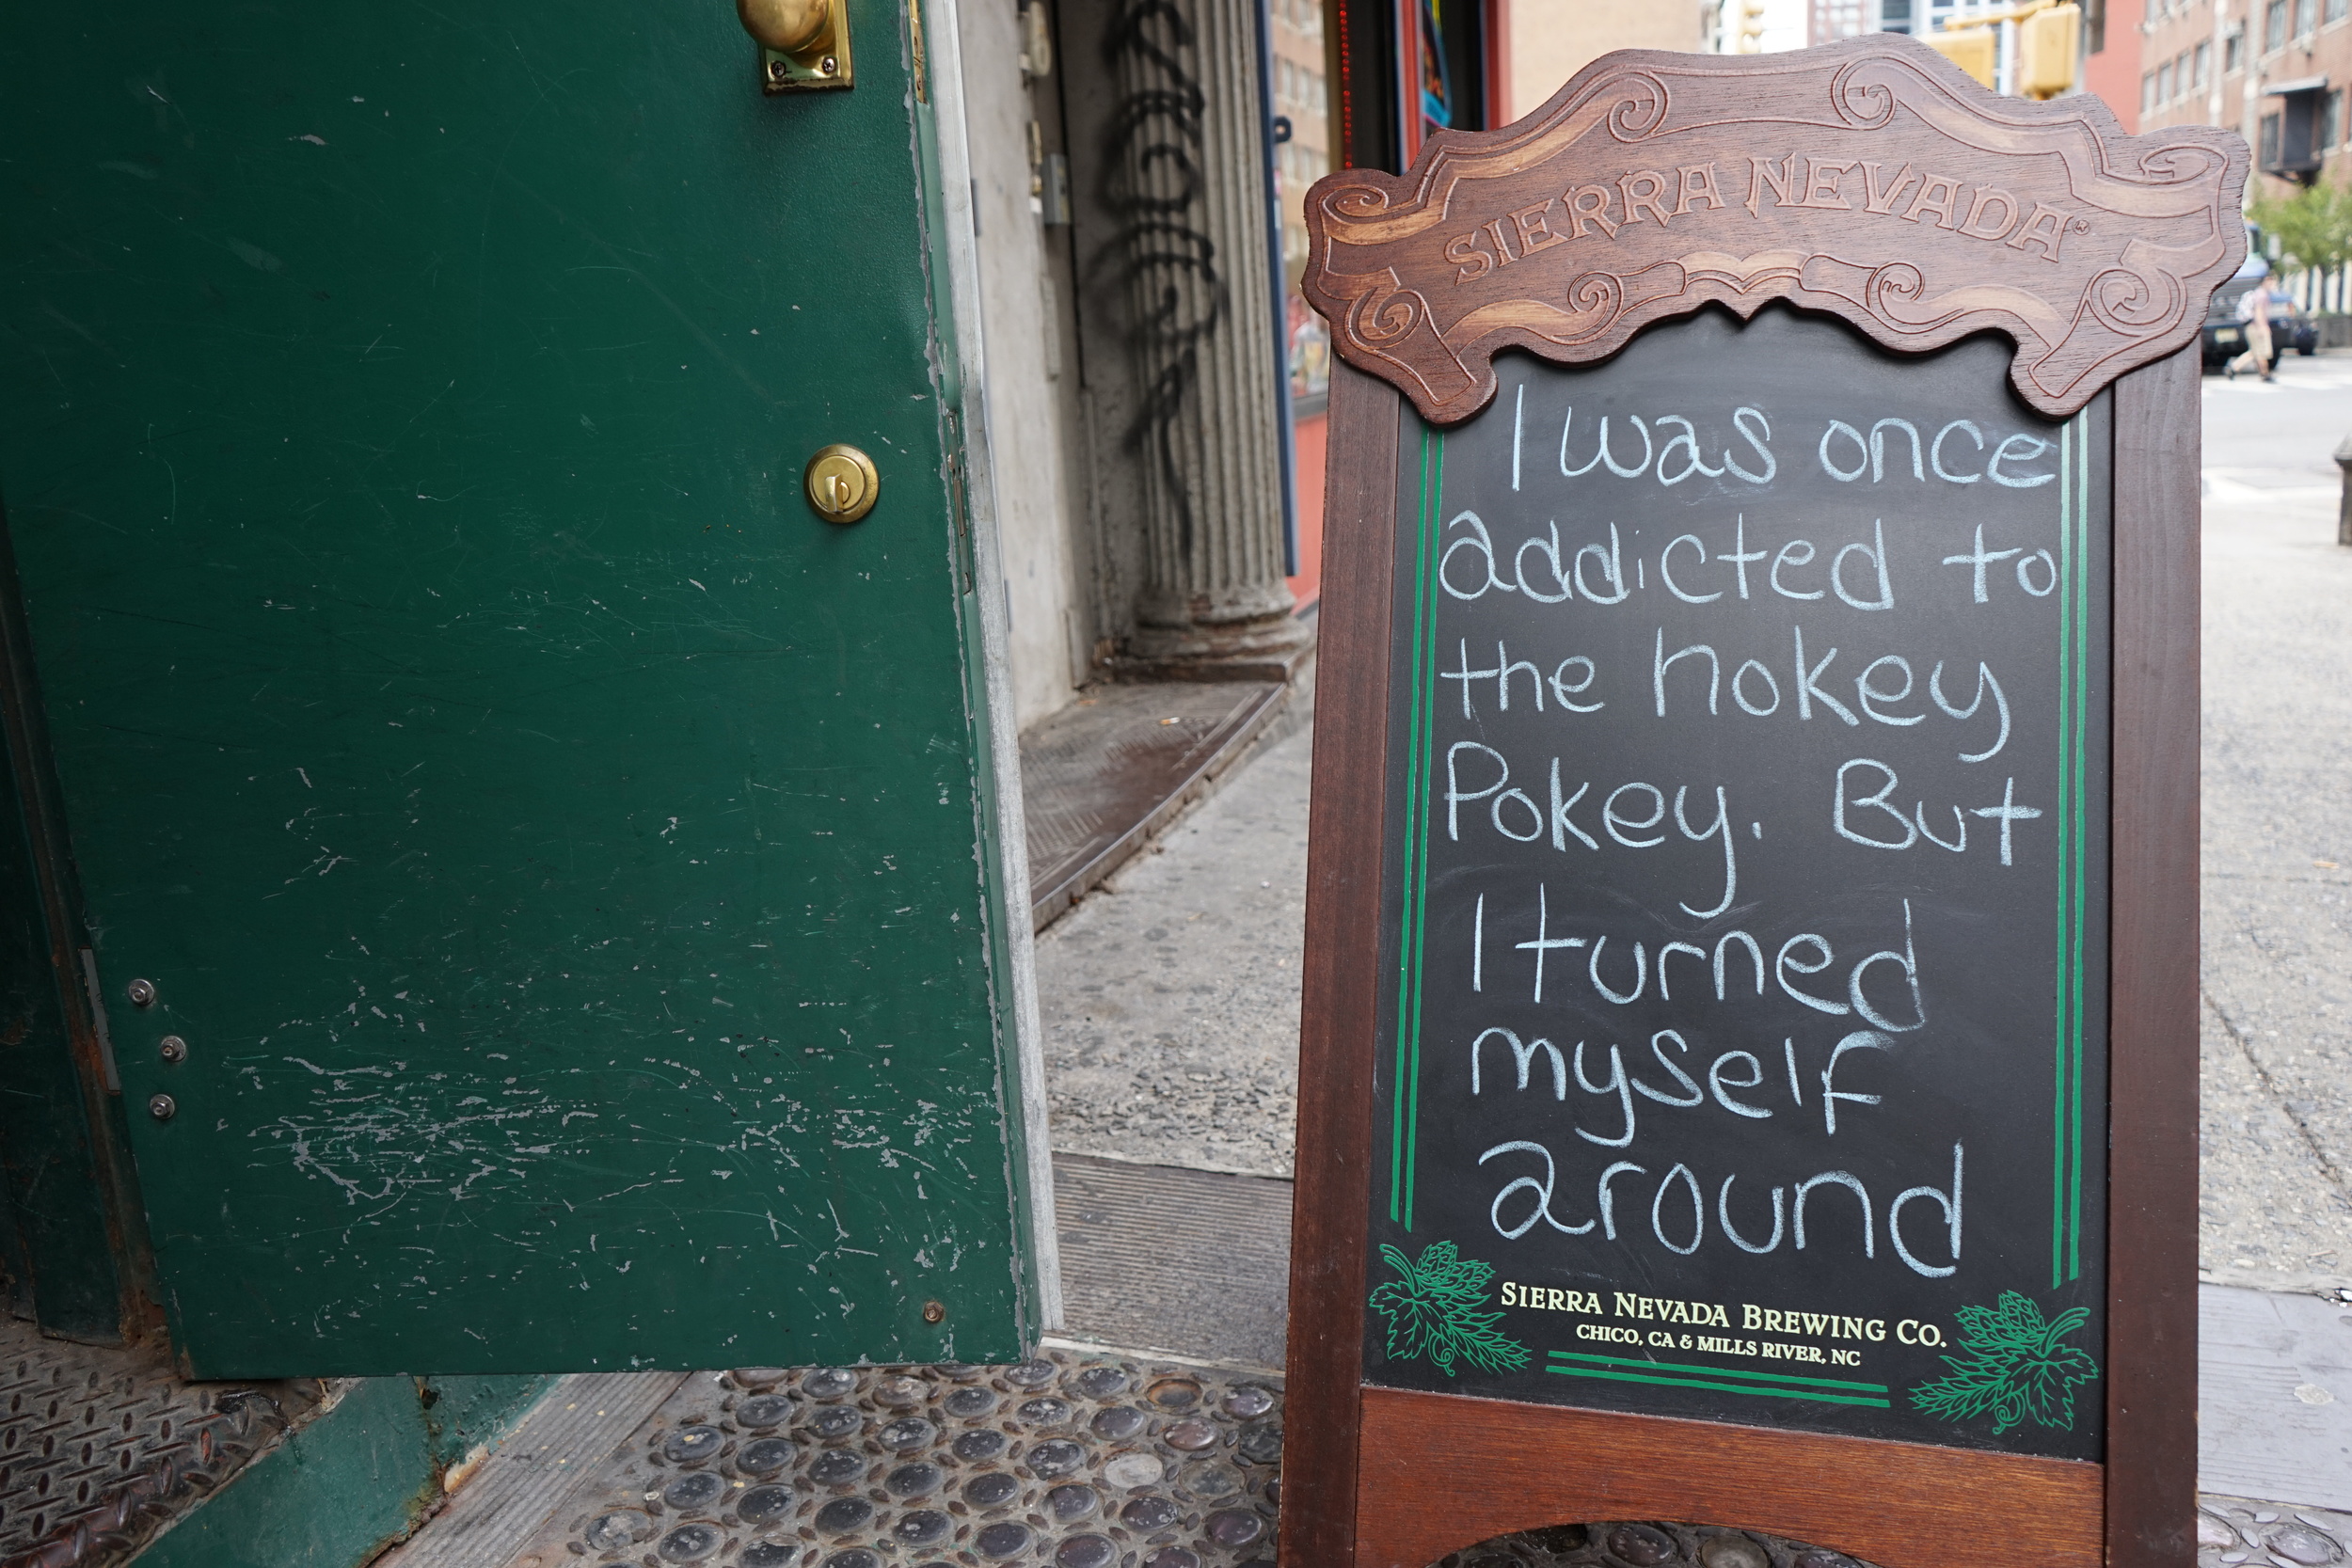 SIERRA NEVADA®
I was once
addicted to
the hokey
Pokey. But
I turned
myself
around
SIERRA NEVADA BREWING CO.
CHICO, CA & MILLS RIVER, NC